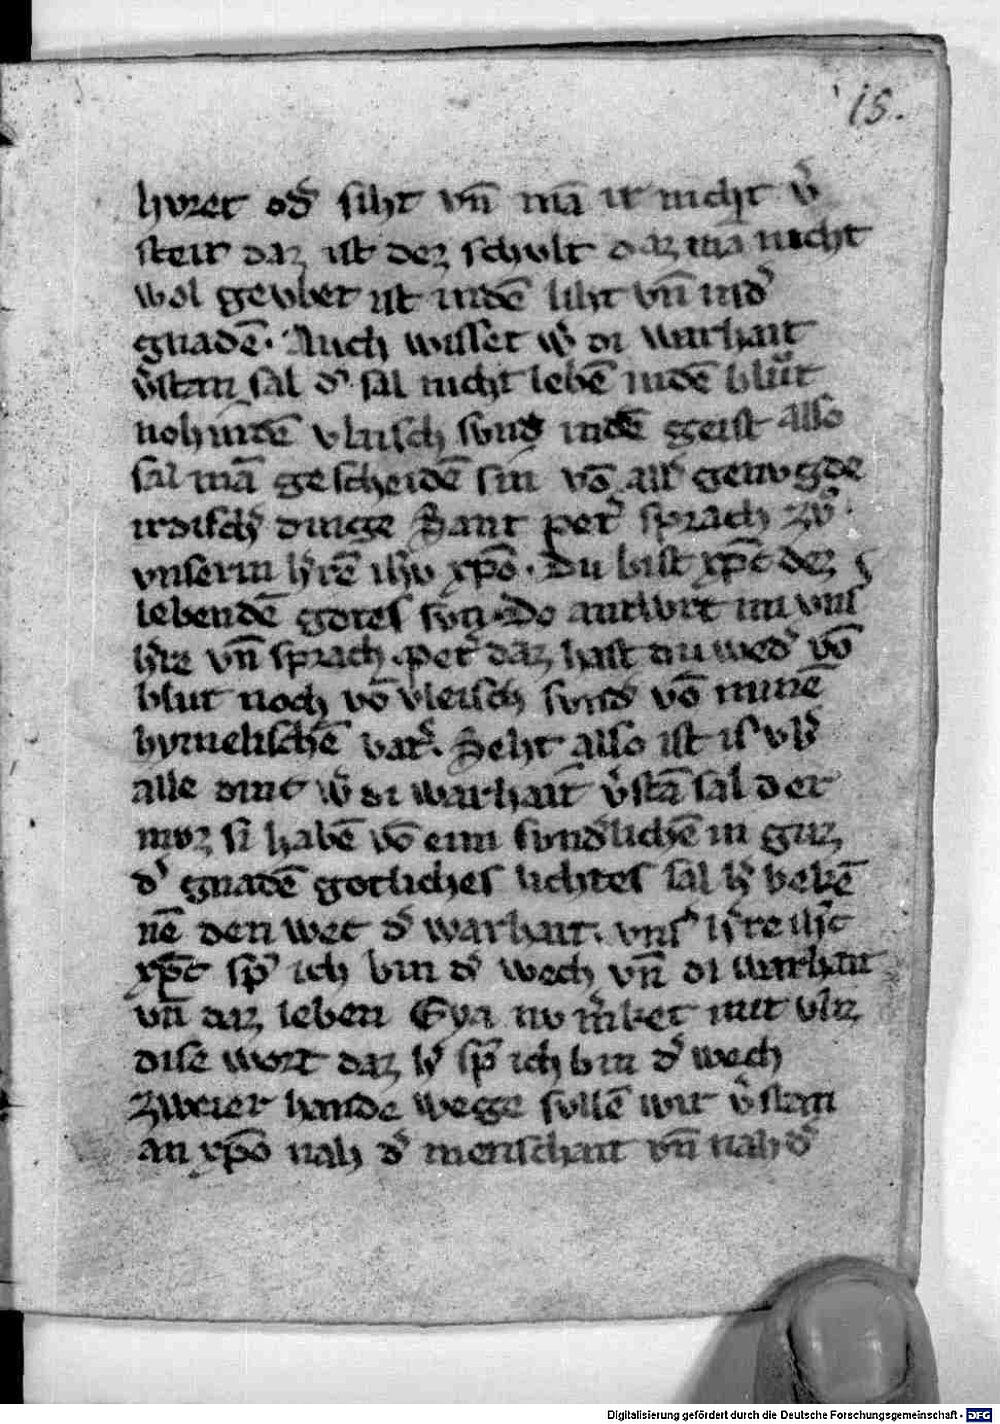 15.
hvret od̓ siht vn̄ mā ir nicht v̓
steit daz ist dez schult daz mā nicht
wol gevbet ist indē liht vn̄ ind̓
gnadē. Auch wisset w̓ di warhait
v̓stan sal d̓ sal nicht lebē indē blůt
noh indē vlaisch sund̓ indē geist Also
sal mā gescheidē sin vō all̓ genugde
irdisch̓ dinge Sant pet̓ sprach zů
vnserm h̓rē ih̄v xp̄o. Du bist xp̄c dez
lebendē gotes svn. Do antwrt im vns̓
h̓re vn̄ sprach. pet̓ daz hast du wed̓ vō
blut noch vō vleisch sund̓ vō minē
hymelischē vat̓. Seht also ist is vb̓
alle dinc w̓ di warhait v̓stā sal der
mvz si habē vō eim sund̓lichē in guz
d̓ gnadē gotliches lichtes sal h̓ bekē
nē den wec d̓ warhait. vns̓ h̓re ih̄c
xp̄c sp̄ ich bin d̓ wech vn̄ di warhait
vn̄ daz leben Eya nv m̓ket mit vliz
dise wort daz h̓ sp̄ ich bin d̓ wech
Zweier hande wege sullē wir v̓stan
an xp̄o nah d̓ menschait vn̄ nah d̓
Digitalisierung gefördert durch die Deutsche Forschungsgemeinschaft - DFG